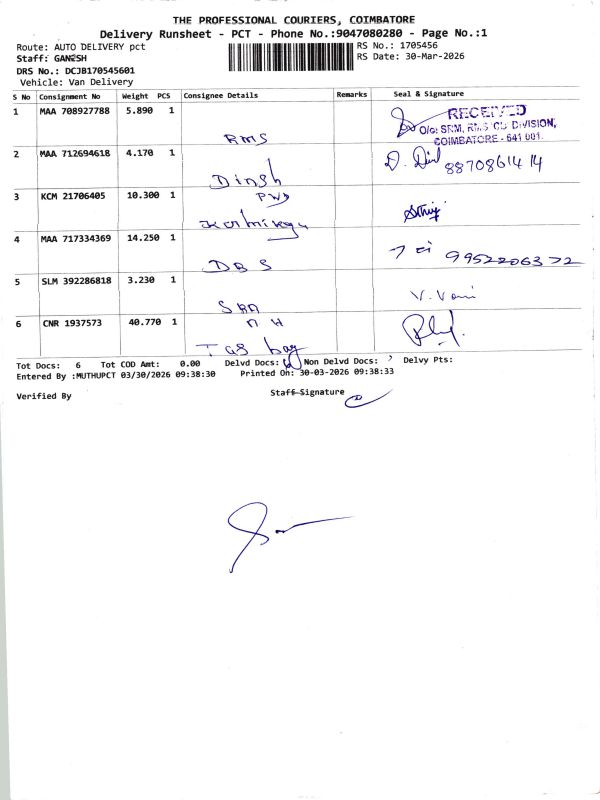 THE PROFESSIONAL COURIERS, COIMBATORE
Delivery Runsheet - PCT - Phone No.:9047080280 - Page No.:1
Route: AUTO DELIVERY pct
RS No.: 1705456
Staff: GANESH
RS Date: 30-Mar-2026
DRS No.: DCJB170545601
Vehicle: Van Delivery
S No Consignment No Weight PCS Consignee Details Remarks Seal & Signature
1 MAA 708927788 5.890 1
RMS
RECEIVED
O/o: SRM, RMS 'CB' DIVISION,
COIMBATORE - 641 001.
2 MAA 712694618 4.170 1
Dinsh
8870861414
3 KCM 21706405 10.300 1
4 MAA 717334369 14.250 1
DBS
9952206372
5 SLM 392286818 3.230 1
V. Vani
6 CNR 1937573 40.770 1
Tot Docs: 6 Tot COD Amt: 0.00 Delvd Docs: Non Delvd Docs: Delvy Pts:
Entered By :MUTHUPCT 03/30/2026 09:38:30 Printed On: 30-03-2026 09:38:33
Verified By
Staff Signature